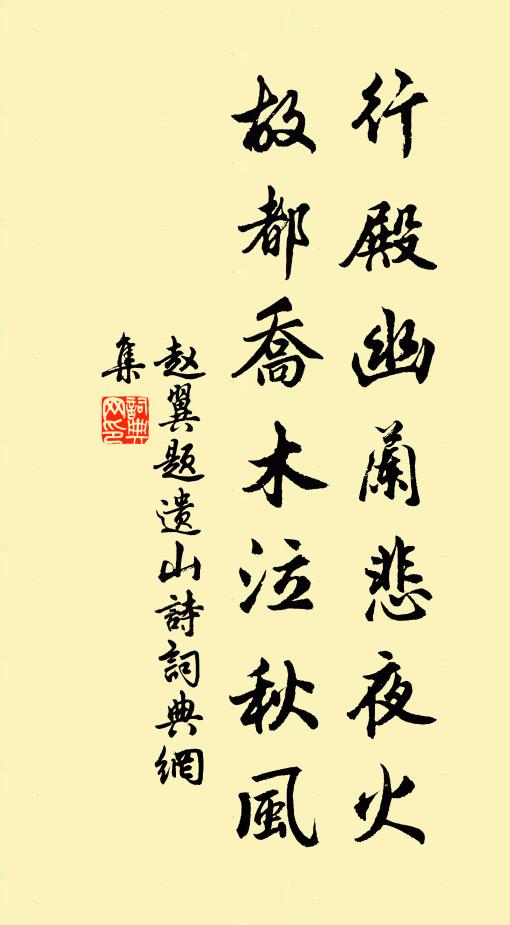 行殿幽蘭悲夜火
故都喬木泣秋風
赵翼题遗山詩詞典網
集
詞典網印